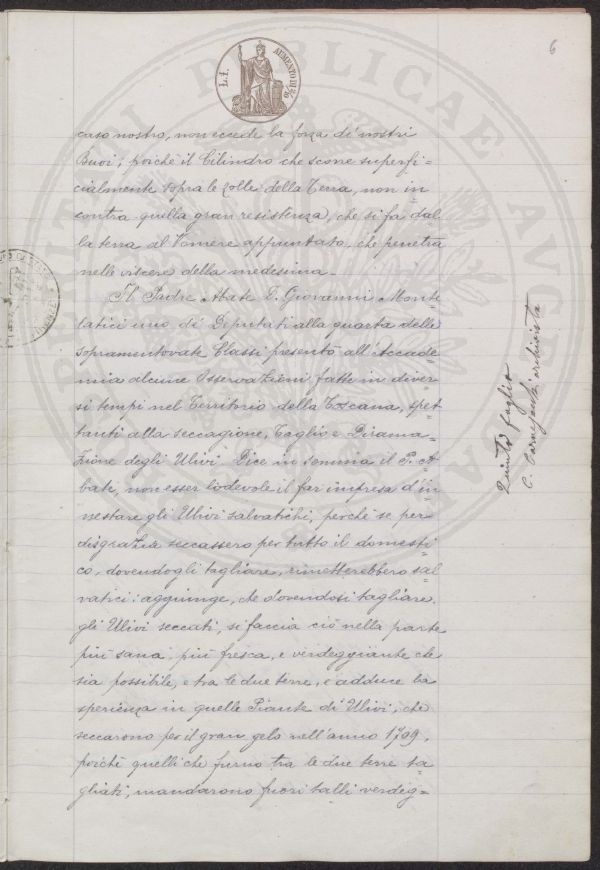 6
L.1. AUMENTO DI 2/10
caso nostro, non eccede la forza de' nostri
Buoi; poichè il Cilindro che scorre superfi=
cialmente sopra le zolle della Terra, non in=
contra quella gran resistenza, che si fa dal=
la terra al Vomere appuntato, che penetra
nelle viscere della medesima.
Il Padre Abate D. Giovanni Monte=
latici uno, di Deputati alla quarta delle
sopramentovate Classi presentò all'Accade=
mia alcune Osservazioni fatte in diver=
si tempi nel Territorio della Toscana, spet=
tanti alla seccagione, Taglio e Dirama=
zione degli Ulivi. Dice in somma il P. A=
bate, non esser lodevole il far impresa d'in=
nestare gli Ulivi salvatichi, perchè se per
disgrazia seccassero per tutto il domesti=
co, dovendogli tagliare, rimetterebbero sal=
vatici: aggiunge, che dovendosi tagliare
gli Ulivi seccati, si faccia ciò nella parte
più sana, più fresca, e verdeggiante che
sia possibile, e tra le due terre, e adduce la
sperienza in quelle Piante di Ulivi, che
seccarono per il gran gelo nell'anno 1709,
poichè quelli che furno tra le due terre ta=
gliati, mandarono fuori talli verdeg=
Quinto foglio
C. archivista
PUBLICAE